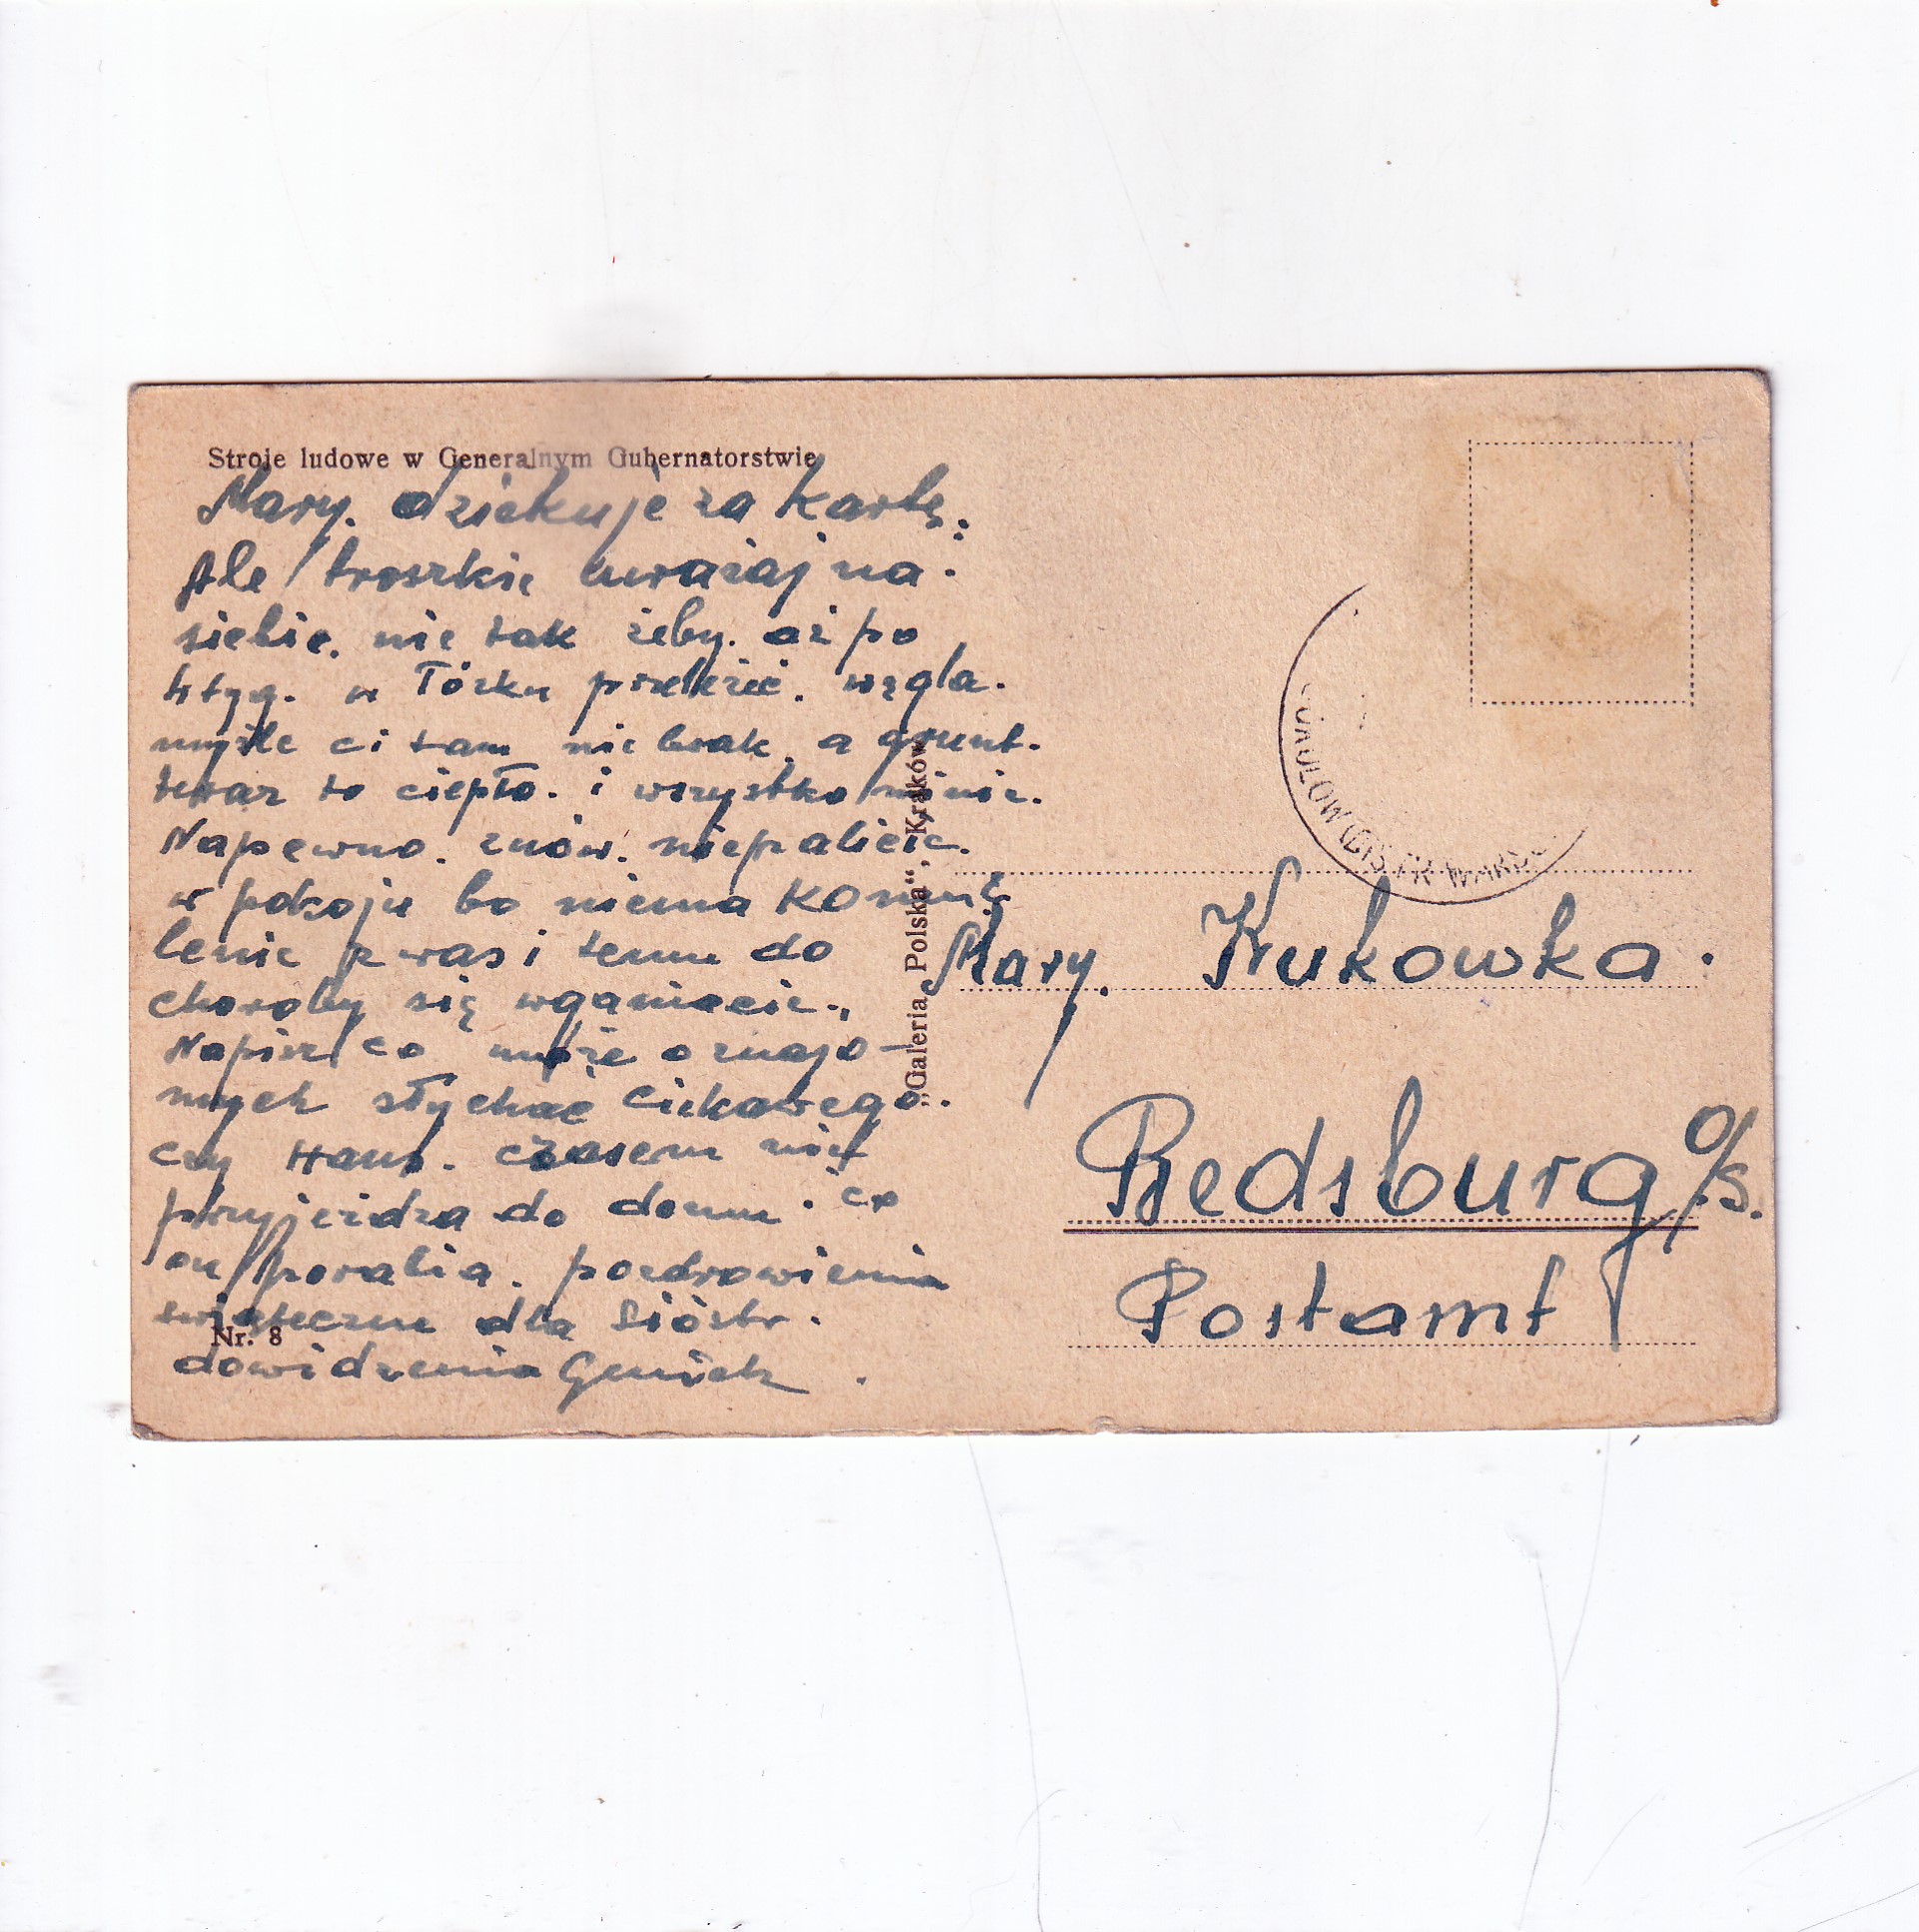 Stroje ludowe w Generalnym Gubernatorstwie
Mary. dziekuje za kartę.
Ale troszkie uważaj na.
siebie. nie tak żeby. aż po
4 tyg. w Tóżku przeleżeć. węgla.
myśle ci tam nie brak a grunt.
teraz to ciepło. i wszystko minie.
Napewno. znów. niepalicie.
w pokoju bo niema komu
lenie z was i temu do
choroby się wganiacie.,
Napisz co może o znajo-
mych słychać ciekawego.
czy Hans. czasem nie
przyjeżdza do domu. co
on porabia. pozdrowienia
swiąteczne dla Sióstr.
dowidzenia Geniek.
Nr. 8
„Galeria Polska“, Kraków
Mary. Kukowka.
Redsburg O/S.
Postamt